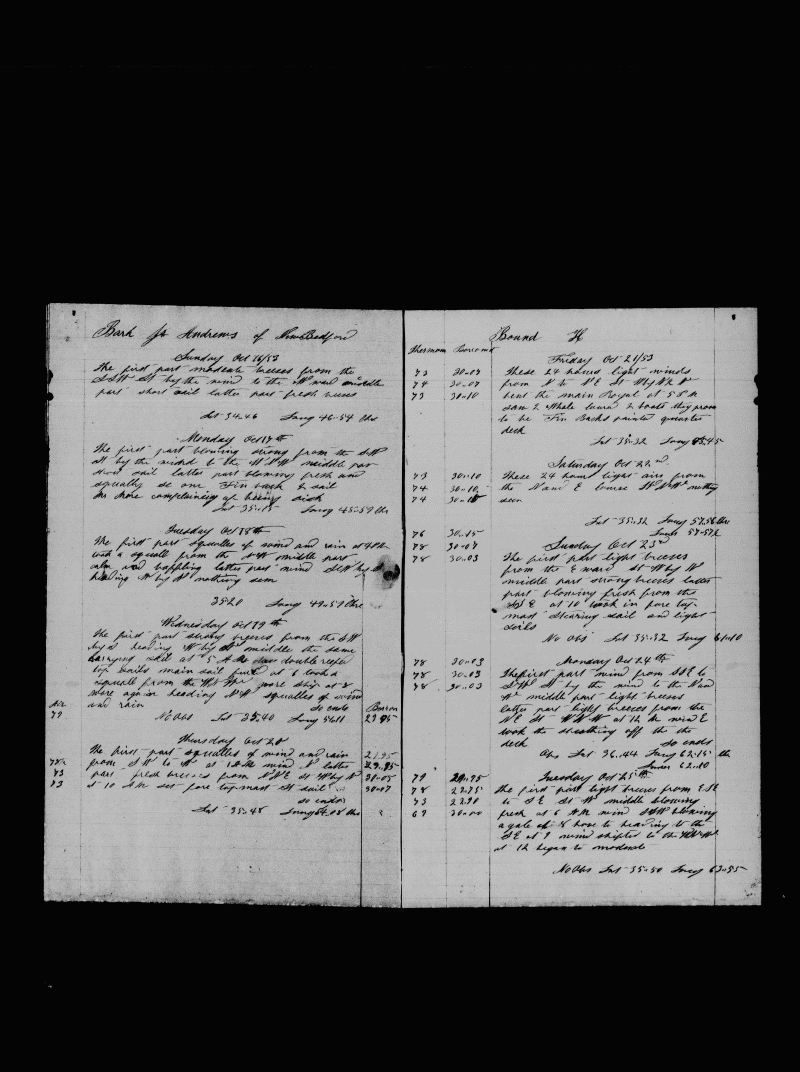 Bark Js Andrews of New Bedford
Sunday Oct 16/53
The first part moderate breeses from the
SSW St by the wind to the W ward middle
part short sail latter part fresh breeses
Lat 34-46 Long 46-54
Monday Oct 17th
The first part blowing strong from the SW
St by the wind to the middle par
short sail latter part blowing fresh and
squally se one Fin back & sail
one more complaineing of being sick
Lat 35-15 Long 45-59
Tuesday Oct 18th
The first part squalles of wind and rain at 4 PM
took a squall from the middle part
calm and baffling latter part wind
heading W by N nothing seen
35-20 Long 49-57
Wednesday Oct 19th
The first part strong breeses from the SW
heading W by middle the same
carrying sail at 5 AM double reefe
top sails main sail at 6 took a
squall from the wore ship at 8
wore again heading NW squalles of wind
and rain
so ends
Air Barom
79 No Obs Lat 35-40 Long 29-95
Thursday Oct 20
The first part squalles of wind and rain 29-95
78 from SW to W at 12 AM wind latter 29-95
73 part fresh breeses from NNE St W by N 30-05
73 at 10 AM set fore top mast St sail 30-07
so ends
Lat 35-48 Long
Bound H
Thermom Baromt
Friday Oct 21/53
73 30-07 These 24 hours light winds
74 30-07 from N to NE St
73 30-10 bent the main Royal at 5 PM
saw 2 Whale lowrd 2 boats they prom
to be Fin Backs painted quarter
deck
Lat 35-32 Long
Saturday Oct 22nd
73 30-10 These 24 hours light airs from
74 30-10 the N and E Course nothing
74 30-15 seen
Lat 35-32 Long 57-56
Lunar 57-52
76 30-15
78 30-07 Sunday Oct 23rd
78 30-03 The first part light breeses
from the E ward St W by W
middle part strong breeses latter
part blowing fresh from the
SSE at 10 took in fore top
mast stearing sail and light
sails
No Obs Lat 35-32 Long 61-10
78 30-03 Monday Oct 24th
78 30-03 The first part wind from SSE to
78 30-03 SW St by the wind to the N and
W middle part light breeses
latter part light breeses from the
NE St WNW at 12 M wind E
took the sheathing off the
deck so ends
Obs Lat 36-44 Long 62-15
Lunar 62-10
79 29-95 Tuesday Oct 25th
78 29-75 The first part light breeses from ESE
73 29-90 to SE St W middle blowing
69 30-00 fresh at 6 AM wind blowing
a gale at 8 hove to heading to the
SE at 9 wind shifted to the
at 12 began to moderate
No Obs Lat 35-50 Long 63-55